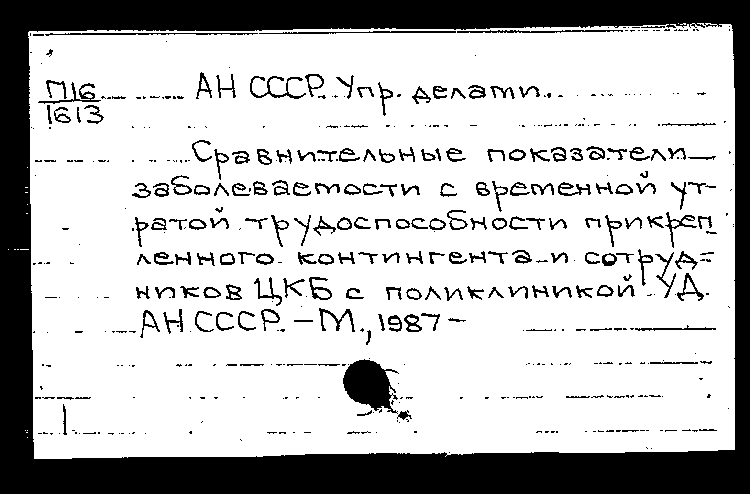 П16 АН СССР. Упр. делами.
1613
Сравнительные показатели
заболеваемости с временной ут-
ратой трудоспособности прикреп-
ленного контингента и сотруд-
ников ЦКБ с поликлиникой УД
АН СССР. – М., 1987 –